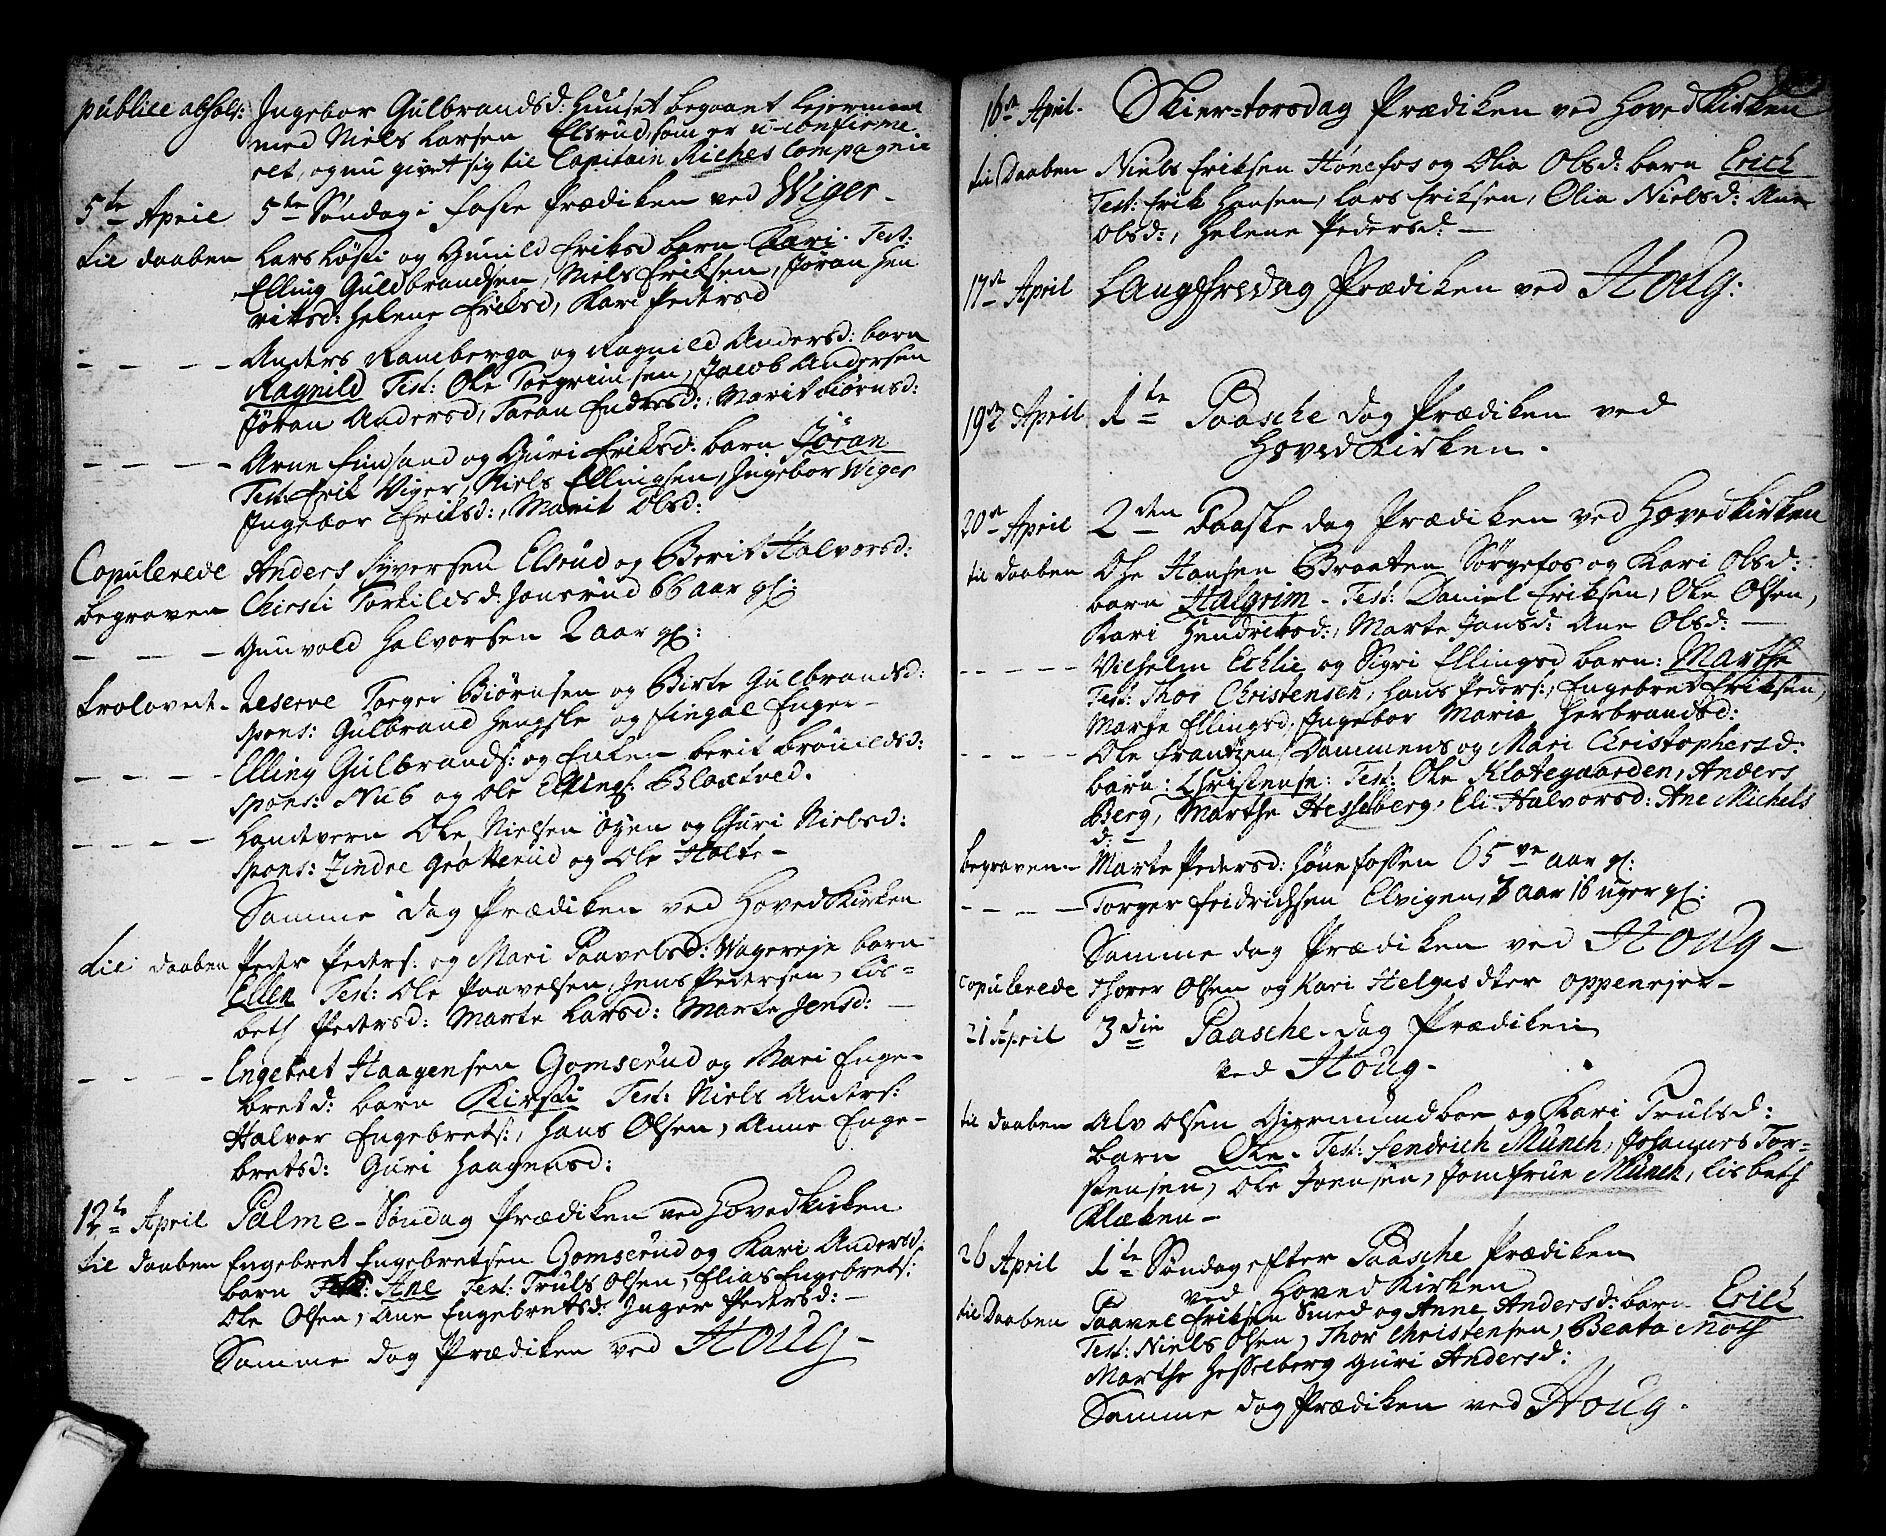 publice absol: Ingebor Gulbrandsd: Huuset begaaet Lejermaal
med Niels Larsen Elsrud som er u-confirme-
ret, og nu givet sig til Capitain Riches Compagnie
5te April 5te Søndag i faste Prædiken ved Wiger -
til daaben Lars Løsti og Gunild Eriksd barn Kari. Test:
Elling Guldbrandsen, Niels Eriksen, Jøran Hen
riksd: Helene Eriksd, Kari Pedersd
- - - - Anders Ramberga og Ragnild Andersd: barn
Ragnild Test: Ole Torgrimsen, Jacob Andersen
Jøran Andersd, Taran Endersd: Marit Biørnsd:
- - - - Arne Findsand og Guri Eriksd: barn Jøran
Test: Erik Viger, Niels Ellingsen, Ingebor Wiger
Ingebor Eriksd:, Marit Olsd:
Copulerede Anders Syversen Elsrud og Berit Halvorsd:
begraven Chirsti Torkildsd: Jonsrud 66 aar gl:
- - - Gunvold Halvorsen 2 aar gl:
trolovet - Reserve Torger Biørnsen og Birte Gulbrandsd:
Spons: Gulbrand Hengsle og Fingal Enger -
- - - - Elling Gulbrands: og Enken Berit Brønildsd:
Spons: Nub og Ole Ellings: Blaxtved.
- - - - Landtvern Ole Nielsen Øyen og Guri Nielsd:
Spons: Zindre Grøtterud og Ole Holte -
Samme dag Prædiken ved Hoved Kirken
til daaben Peder Peders: og Mari Paavelsd: Wagereje barn
Ellen Test: Ole Paavelsen, Jens Pedersen, Lis=
beth Pedersd: Marte Larsd: Marte Jensd: -
- - - - Engebret Haagensen Gomserud og Mari Enge-
bretd: barn Kirsti Test: Niels Anders:
Halvor Engebrets:, Hans Olsen, Anne Enge-
bretsd: Guri Haagensd:
12te April Palme-Søndag Prædiken ved Hovedkirken
til daaben Engebret Engebretsen Gomserud og Kari Andersd:
barn Ane Test: Truls Olsen, Elias Engebrets:
Ole Olsen, Ane Engebretsd: Inger Pedersd: -
Samme dag Prædiken ved Houg -
16de April. Skier-torsdag Prædiken ved Hoved Kirken
til Daaben Niels Eriksen Hønefos og Olia Olsd: barn Erich
Test: Erik Hansen, Lars Eriksen, Olia Nielsd: Ane
Olsd:, Helene Pedersd: -
17de April Langfredag Prædiken ved Houg:
19de April 1te Paasche dag Prædiken ved
Hoved Kirken.
20de April 2den Paaske dag Prædiken ved Hovedkirken
til daaben Ole Hansen Braaten Sørgefos og Kari Olsd:
barn Halgrim - Test: Daniel Eriksen, Ole Olsen,
Kari Hendriksd:, Marte Jansd: Ane Olsd: -
- - - - Vilhelm Echlie og Sigri Ellingsd barn: Marthe
Test: Thor Christensen, Hans Peders:, Engebret Eriksen,
Marte Ellingsd: Ingebor Maria Herbrandsd:
- - - - Ole Frantzen Dammens og Mari Christophersd:
barn: Christense: Test: Ole Klokegaarden, Anders
Berg, Marthe Hesselberg, Eli Halvorsd: Ane Michels
d: -
begraven - Marte Pedersd: Hønefossen 65ve aar gl:
- - - - Torger Fridrichsen Elvigen, 3 aar 16 uger gl:
Samme dag Prædiken ved Houg -
Copulerede Thorer Olsen og Kari Helgesdter Oppenejer -
21 April 3die Paasche-dag Prædiken
ved Houg.
til daaben Alv Olsen Giermundboe og Kari Trulsd:
barn Ole. Test: Hendrich Münch, Johannes Tor-
stensen, Ole Joensen, Jomfrue Münch, Lisbeth
Klæken -
26 April 1te Søndag efter Paasche Prædiken
ved Hoved Kirken
til Daaben Paavel Eriksen Smed og Anne Andersd: barn Erich
Test: Niels Olsen, Thor Christensen, Beata Moth
Marthe Hesselberg Guri Andersd:
Samme dag Prædiken ved Houg.